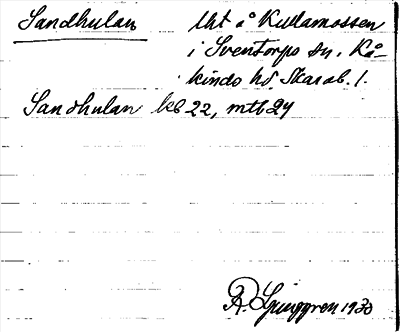 Sandhulan
Uht å Kullamossen
i Sventorps sn. Kå-
kinds hd Skarab. l.
Sandhulan leb 22, mtb 24
R. Ljunggren 1930